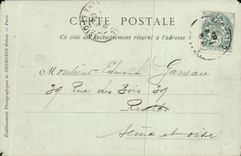 CARTE POSTALE
Ce côté est exclusivement réservé à l'adresse
Monsieur Edmond Garreau
30 Rue des Bois 30
Seine et Oise
Etablissements Photographiques de NEURDEIN Frères. — Paris